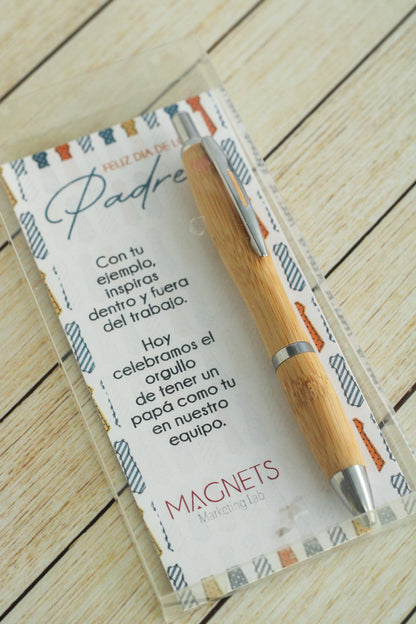 FELIZ DIA DE L
Padre
Con tu
ejemplo,
inspiras
dentro y fuera
del trabajo.
Hoy
celebramos el
orgullo
de tener un
papá como tu
en nuestro
equipo.
MAGNETS
Marketing Lab